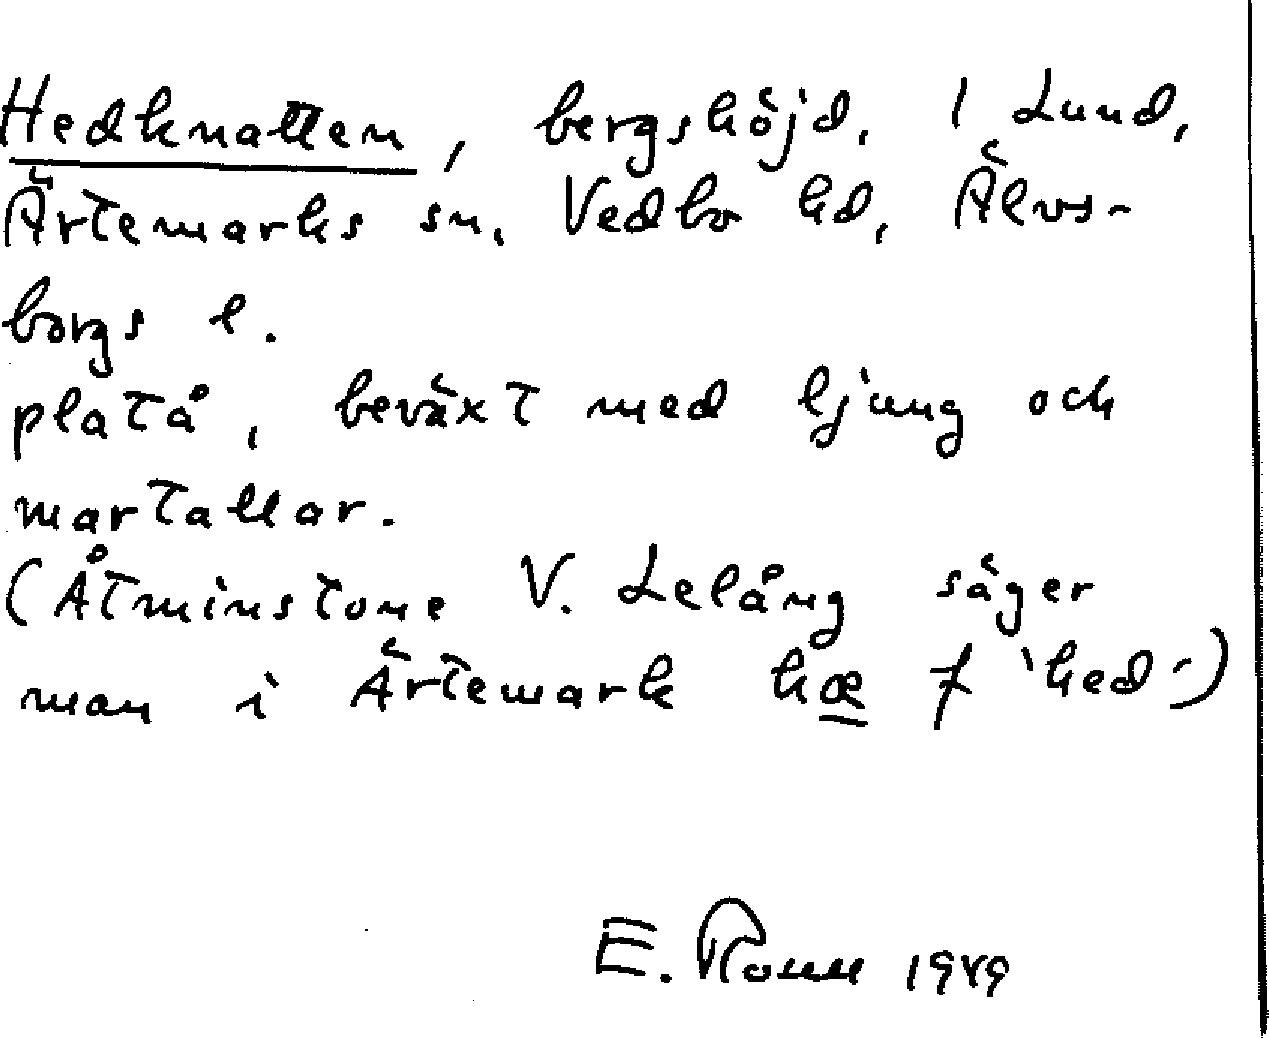 Hedknatten, bergshöjd. I Lund,
Ärtemarks sn. Vedbo hd, Älvs-
borgs l.
platå, beväxt med ljung och
martallar.
(Åtminstone V. Lelång säger
man i Ärtemark hæ f 'hed'.)
E. 1949